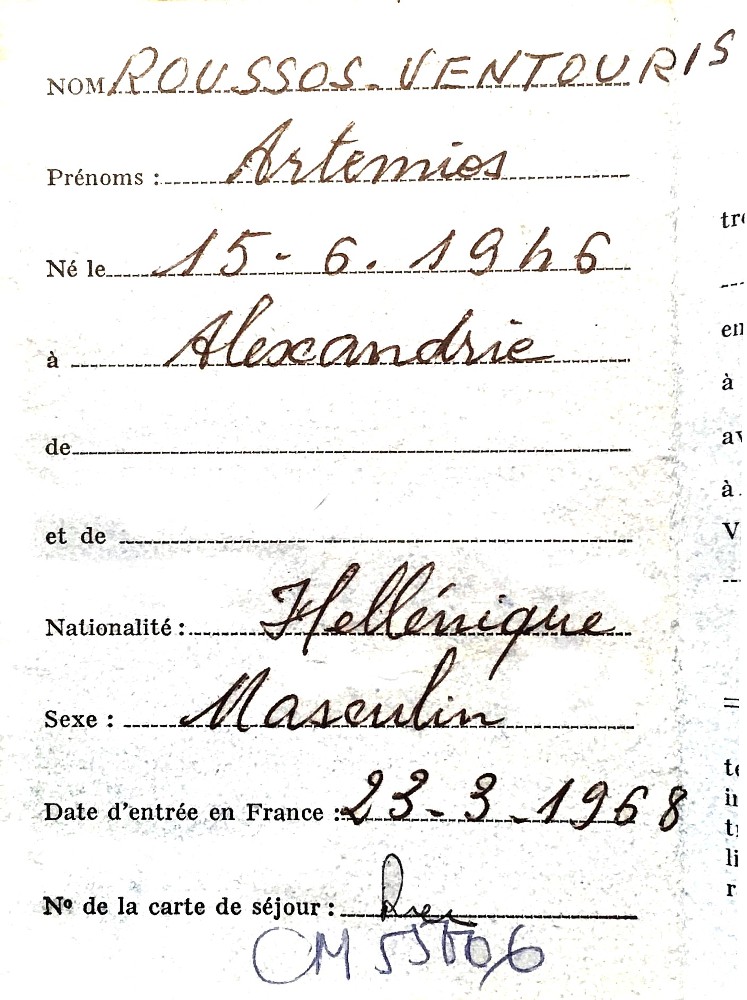 NOM ROUSSOS-VENTOURIS
Prénoms : Artemios
Né le 15-6.1946
à Alexandrie
de
et de
Nationalité : Hellénique
Sexe : Masculin
Date d'entrée en France : 23-3-1968
Nº de la carte de séjour :
tr
en
à
av
à
V
te
li
r